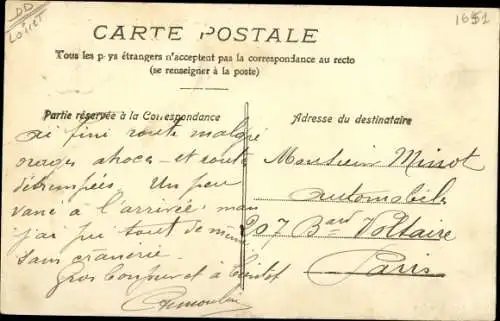 DD
Loiret
1651
CARTE POSTALE
Tous les pays étrangers n'acceptent pas la correspondance au recto
(se renseigner à la poste)
Partie réservée à la Correspondance
ai fini route malgré
orages atroces et route
détrempées. Un peu
vané à l'arrivée mais
j'ai pu tout de même
sans crânerie.
Gros bonjour et à bientôt
Adresse du destinataire
Monsieur Minot
automobiles
207 Bard Voltaire
Paris